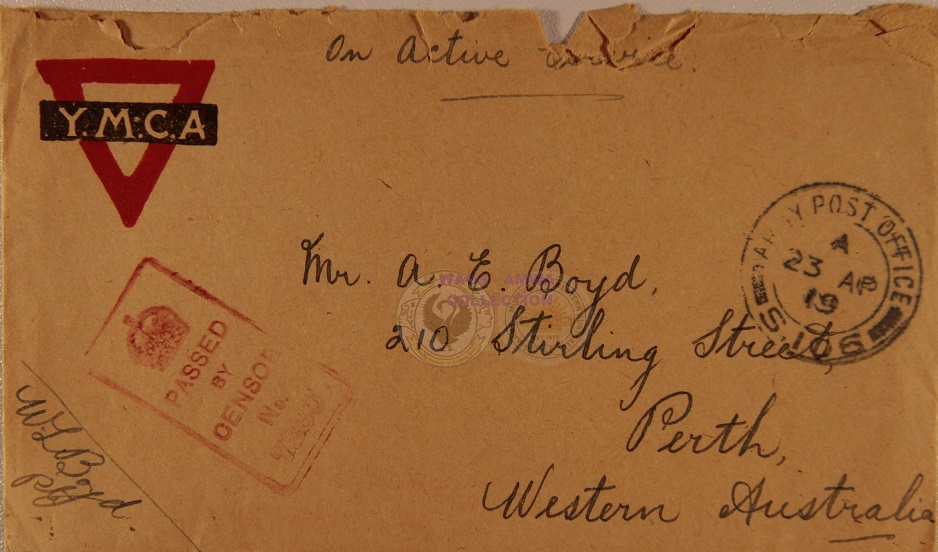 On Active Service.
Y.M.C.A
ARMY POST OFFICE
A
23 AP
19
Mr. A. E. Boyd,
210. Stirling Street,
Perth,
Western Australia
PASSED
BY
CENSOR
No.
W L Boyd
COLLECTION